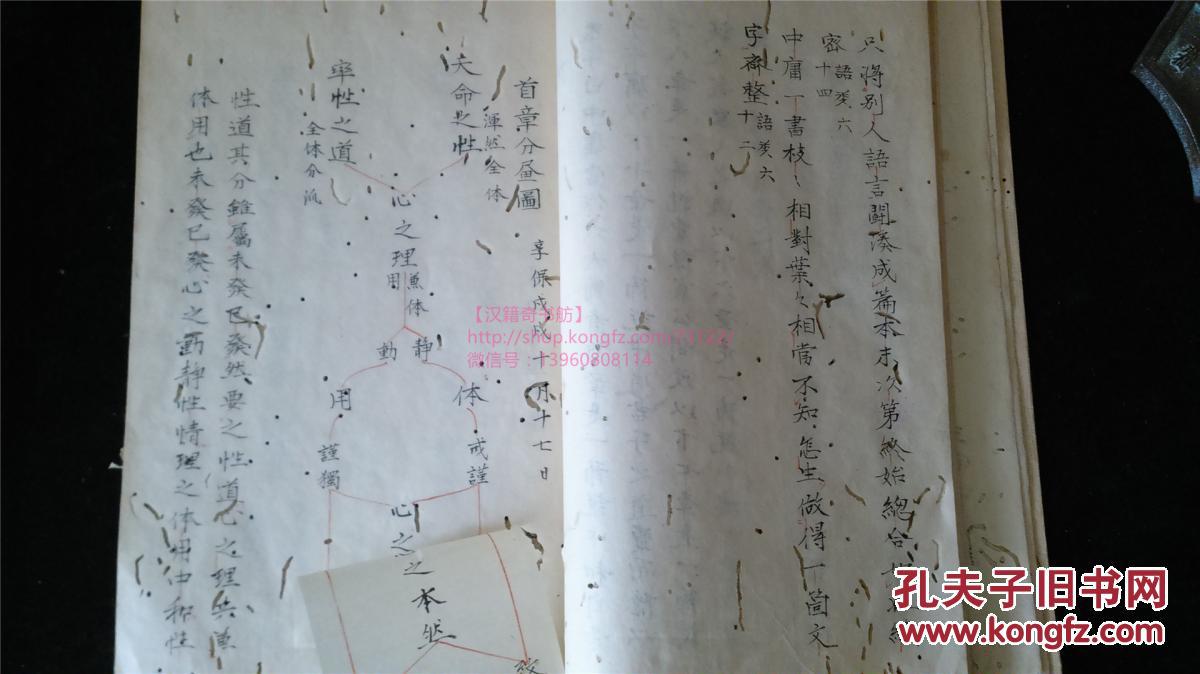 只將別人語言鬪湊成篇本末次第終始總合
密 語类六十四
中庸一書枝〻相對葉々相當不知怎生做得一箇文
字齊整 語类六十二
首章分图圖 享保戊戌十月十七日
天命之性 渾然全体
率性之道 全体分派
心之理 兼体用
静 動
体 用
戒謹 謹獨
心之
之本然
性道其分雖属未発已発然要之性道心之理共兼
体用也未発已発心之動静性情理之体用中和性
【汉籍奇书舫】
http://shop.kongfz.com/73122/
微信号:13960808114
孔夫子旧书网
www.kongfz.com